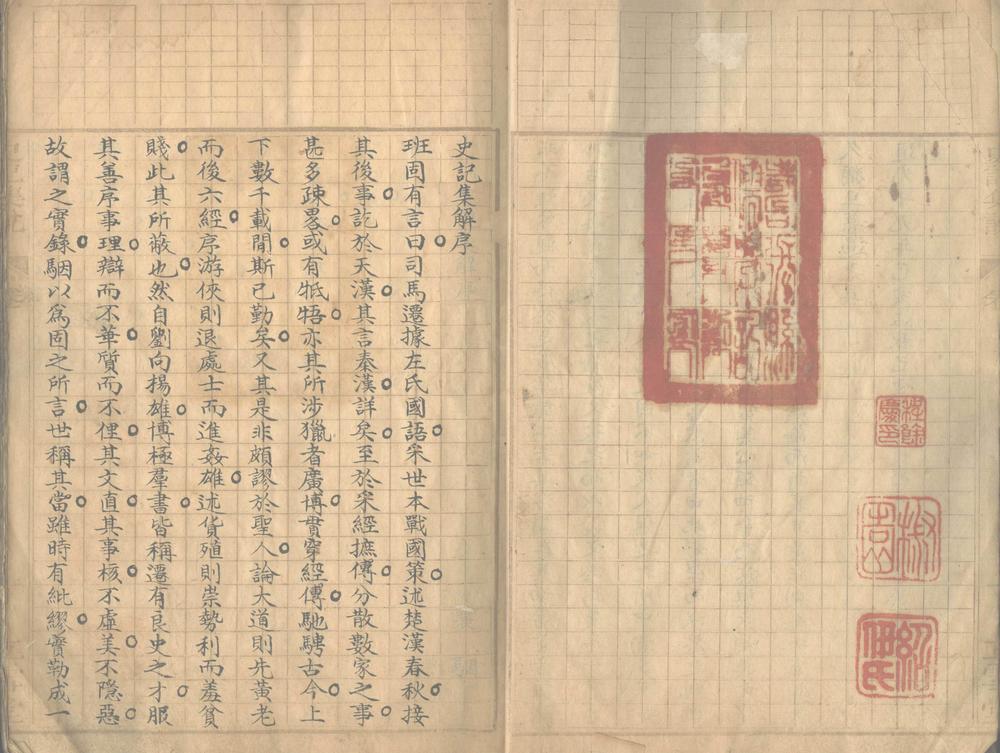 史記集解序
班固有言曰司馬遷據左氏國語采世本戰國策述楚漢春秋接
其後事訖於天漢其言秦漢詳矣至於采經摭傳分散數家之事
甚多疎畧或有牴牾亦其所涉獵者廣博貫穿經傳馳騁古今上
下數千載間斯已勤矣又其是非頗謬於聖人論大道則先黃老
而後六經序游俠則退處士而進姦雄述貨殖則崇勢利而羞貧
賤此其所蔽也然自劉向揚雄博極羣書皆稱遷有良史之才服
其善序事理辯而不華質而不俚其文直其事核不虛美不隱惡
故謂之實錄駰以爲固之所言世稱其當雖時有紕繆實勒成一